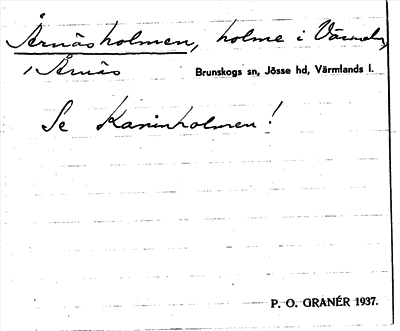 Årnäsholmen, holme i Värmeln,
i Årnäs
Brunskogs sn, Jösse hd, Värmlands l.
Se Kaninholmen!
P. O. GRANÉR 1937.